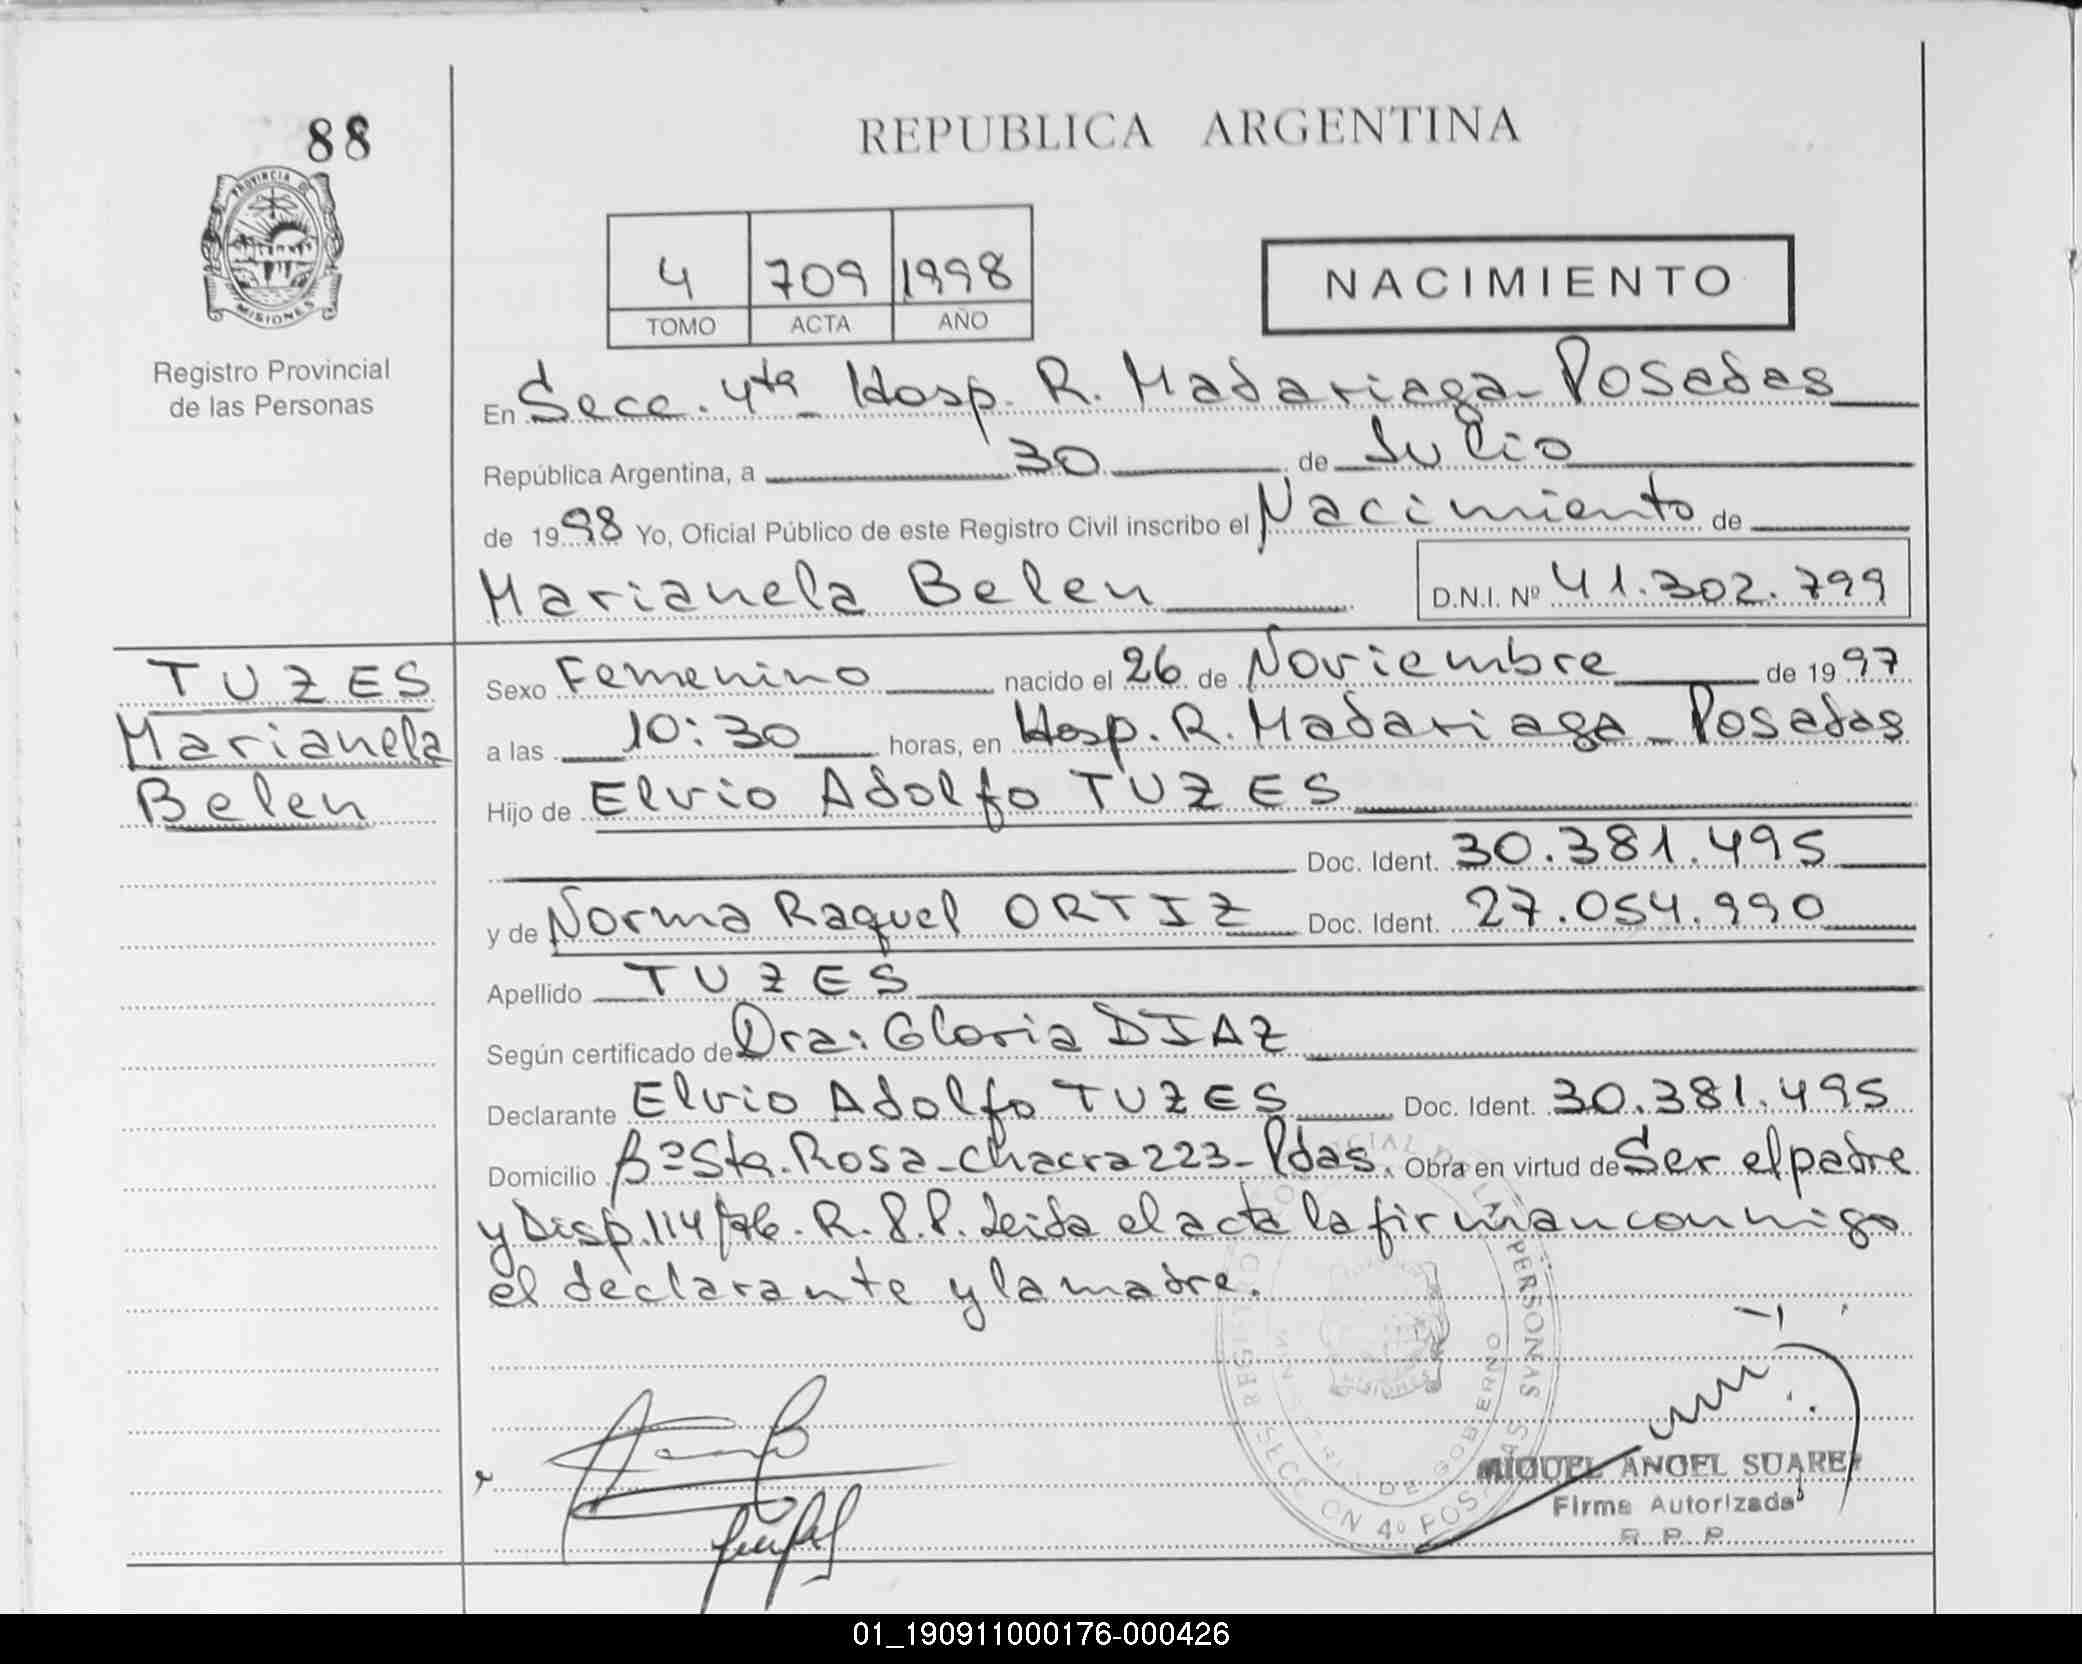 88
REPUBLICA ARGENTINA
PROVINCIA DE
MISIONES
Registro Provincial
de las Personas
4 709 1998
TOMO ACTA AÑO
NACIMIENTO
En Secc. 4ta_ Hosp. R. Madariaga_ Posadas
República Argentina, a 30 de Julio
de 1998 Yo, Oficial Público de este Registro Civil inscribo el Nacimiento de
Marianela Belen D.N.I. Nº 41.302.799
TUZES
Marianela
Belen
Sexo Femenino nacido el 26 de Noviembre de 1997
a las 10:30 horas, en Hosp. R. Madariaga_ Posadas
Hijo de Elvio Adolfo TUZES
Doc. Ident. 30.381.495
y de Norma Raquel ORTIZ Doc. Ident. 27.054.990
Apellido TUZES
Según certificado de Dra: Gloria DIAZ
Declarante Elvio Adolfo TUZES Doc. Ident. 30.381.495
Domicilio Bº Sta. Rosa_ Chacra 223_ Pdas. Obra en virtud de Ser el padre
y Disp. 114/96. R.P.P. Leida el acta la firman conmigo
el declarante y la madre.
MIGUEL ANGEL SUAREZ
Firma Autorizada
R.P.P.
01_190911000176-000426